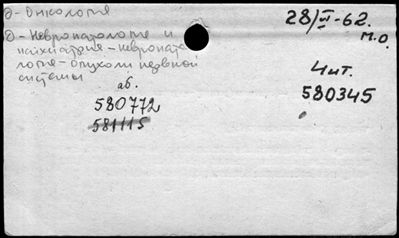 д-Онкология
28/VI-62.
М.О.
д-Невропатология и
психиатрия-невропато
логия-Опухоли нервной
системы
Чит.
аб.
580772
580345
581115